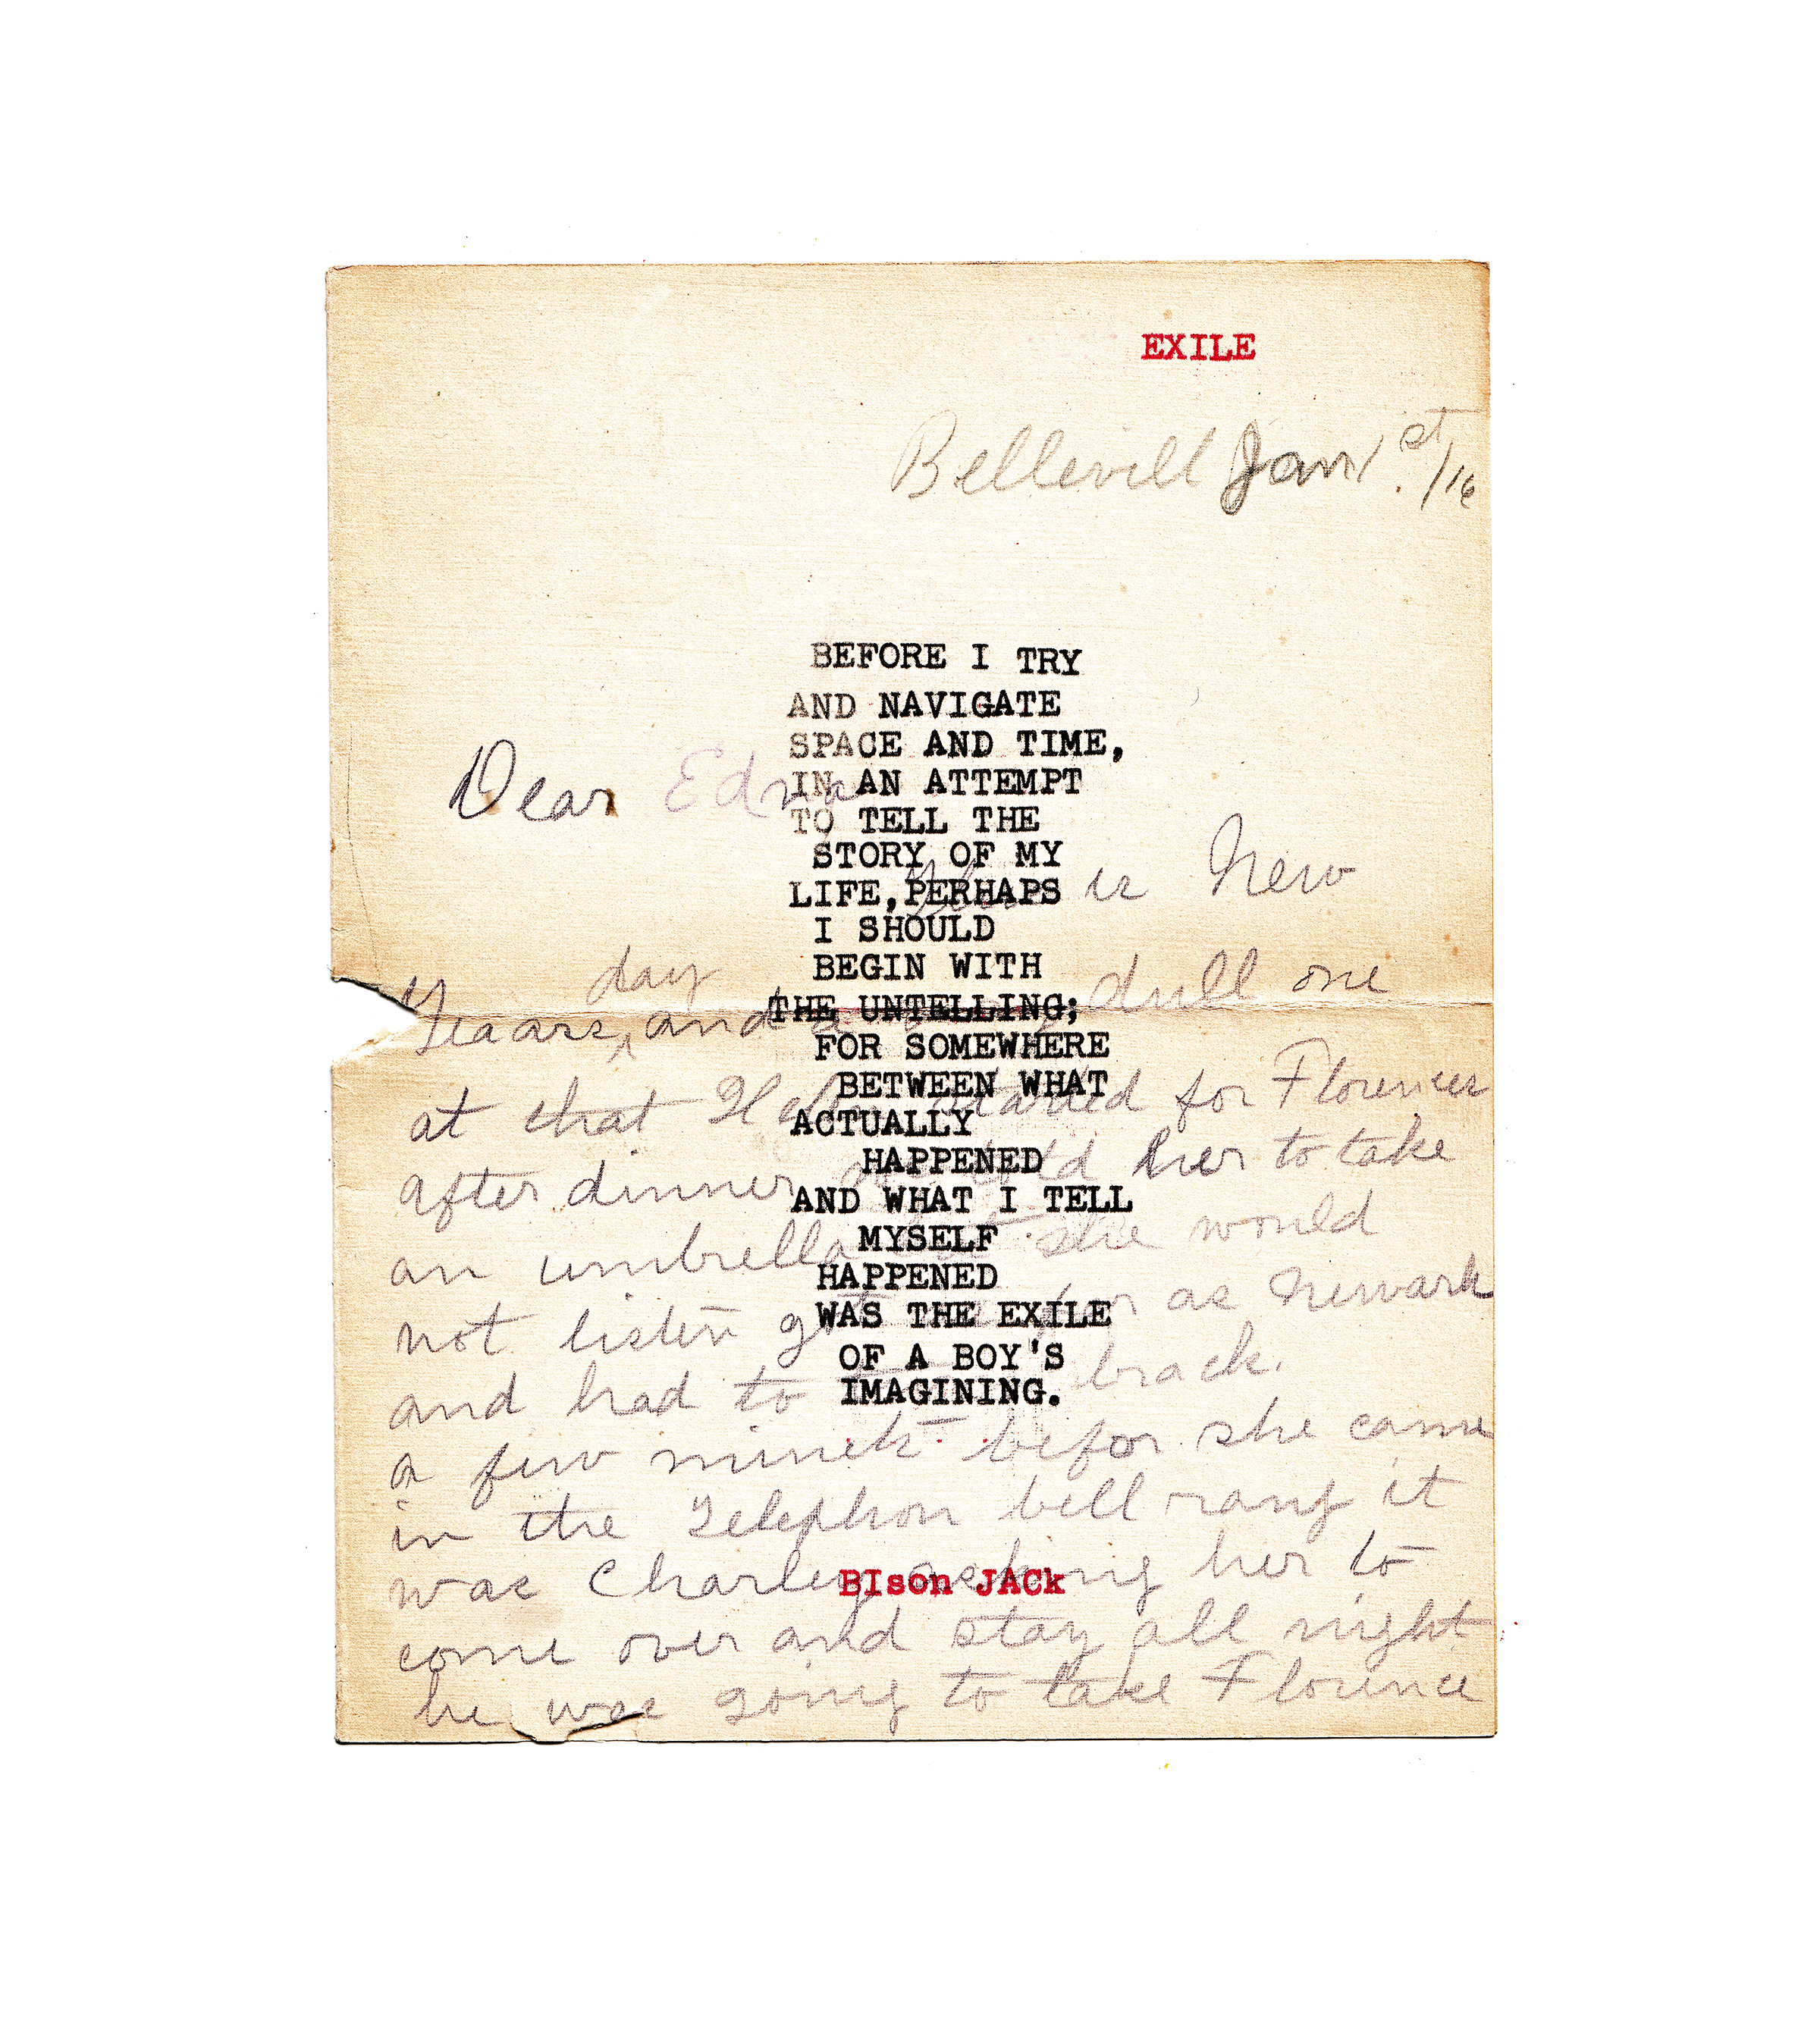 EXILE
Bellevill Jan 1st /16
BEFORE I TRY
AND NAVIGATE
SPACE AND TIME,
IN AN ATTEMPT
TO TELL THE
STORY OF MY
LIFE, PERHAPS
I SHOULD
BEGIN WITH
THE UNTELLING;
FOR SOMEWHERE
BETWEEN WHAT
ACTUALLY
HAPPENED
AND WHAT I TELL
MYSELF
HAPPENED
WAS THE EXILE
OF A BOY'S
IMAGINING.
Dear Edna
is New
Yeaars day and a dull one
at that started for Florences
after dinner told her to take
an umbrella but she would
not listen got as far as Newark
and had to back.
a few minets befor she came
in the Telephon bell rang it
was Charley asking her to
come over and stay all night
he was going to take Florence
BIson JACk